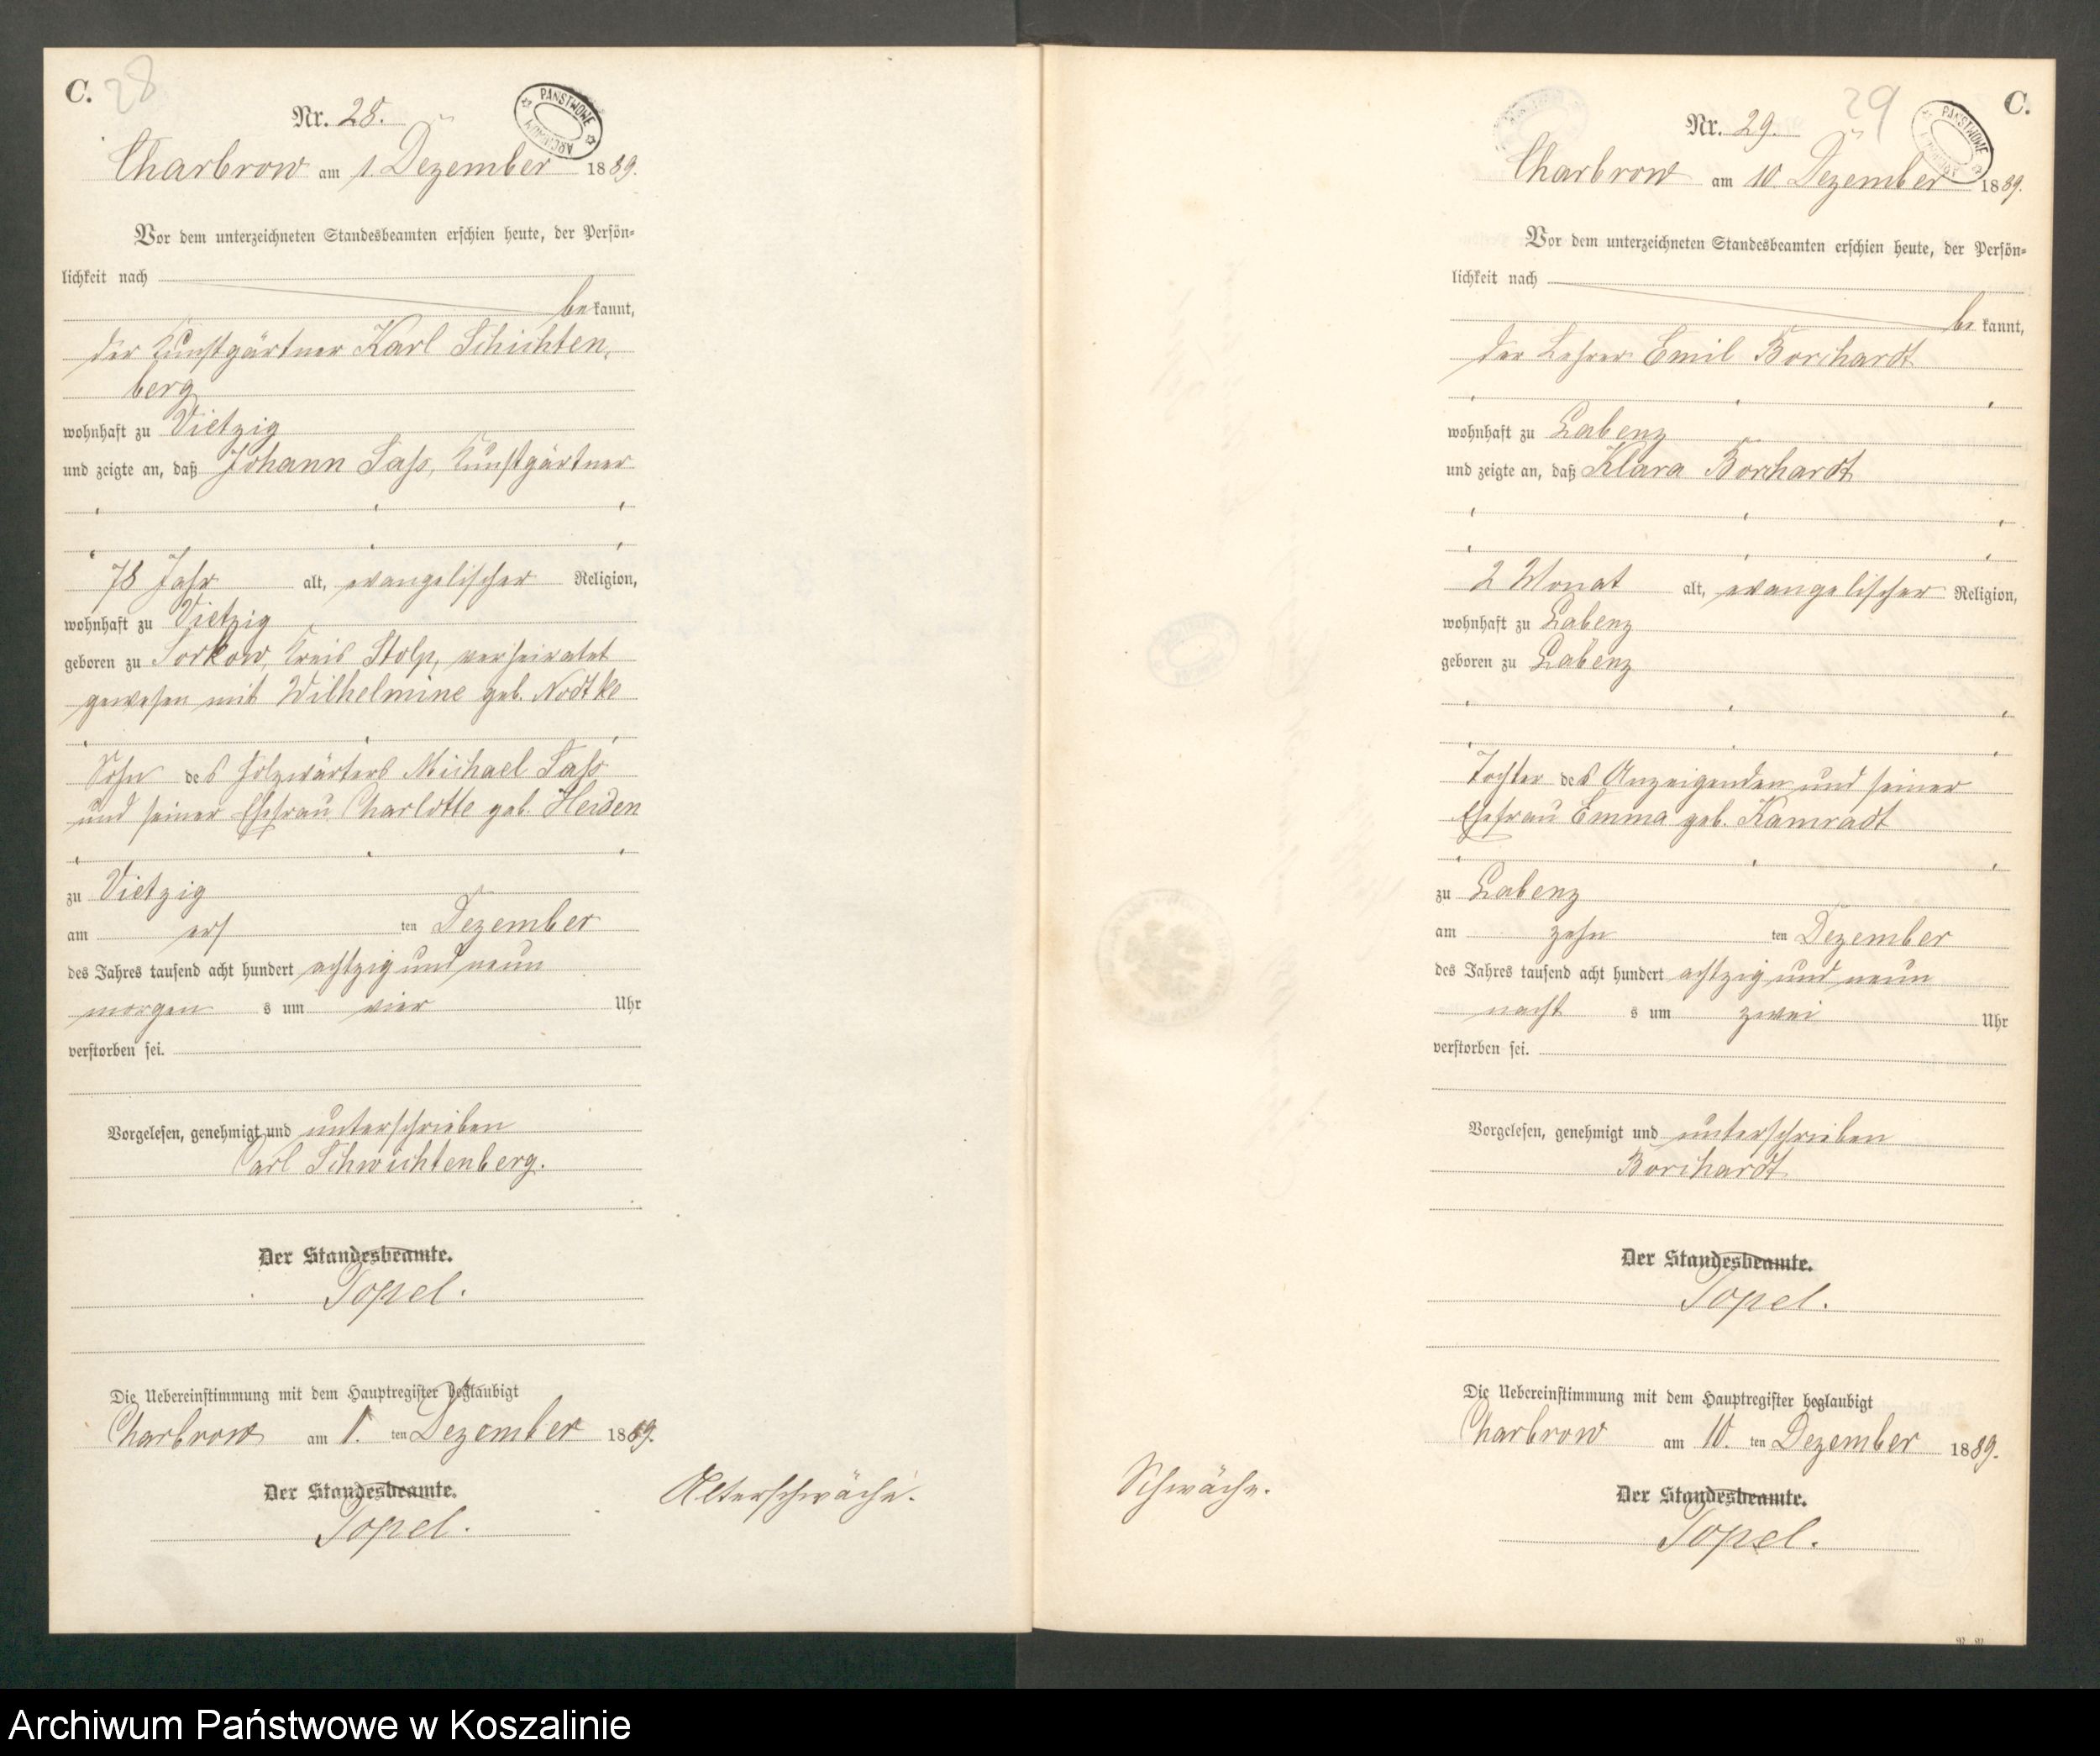 C. 28
Nr. 28.
PAŃSTWOWE ARCHIWUM
Charbrow am 1. Dezember 1889.
Vor dem unterzeichneten Standesbeamten erschien heute, der Persön-
lichkeit nach
bekannt,
der Kunstgärtner Karl Schichten,
berg
wohnhaft zu Vietzig
und zeigte an, daß Johann Sass, Kunstgärtner
78 Jahr alt, evangelischer Religion,
wohnhaft zu Vietzig
geboren zu Sorkow, Kreis Stolp, verheiratet
gewesen mit Wilhelmine geb. Nodtke
Sohn des Holzwärters Michael Sass
und seiner Ehefrau Charlotte geb. Heiden
zu Vietzig
am ers ten Dezember
des Jahres tausend acht hundert achtzig und neun
morgen s um vier Uhr
verstorben sei.
Vorgelesen, genehmigt und unterschrieben
Carl Schwichtenberg.
Der Standesbeamte.
Topel.
Die Uebereinstimmung mit dem Hauptregister beglaubigt
Charbrow am 1. ten Dezember 1889.
Der Standesbeamte.
Topel.
Alterschwäche.
29 C.
Nr. 29.
PAŃSTWOWE ARCHIWUM
Charbrow am 10. Dezember 1889.
Vor dem unterzeichneten Standesbeamten erschien heute, der Persön-
lichkeit nach
be kannt,
der Lehrer Emil Borchardt
wohnhaft zu Labenz
und zeigte an, daß Klara Borchardt
2 Monat alt, evangelischer Religion,
wohnhaft zu Labenz
geboren zu Labenz
Tochter des Anzeigenden und seiner
Ehefrau Emma geb. Kamradt
zu Labenz
am zehn ten Dezember
des Jahres tausend acht hundert achtzig und neun
nacht s um zwei Uhr
verstorben sei.
Vorgelesen, genehmigt und unterschrieben
Borchardt
Der Standesbeamte.
Topel.
Die Uebereinstimmung mit dem Hauptregister beglaubigt
Charbrow am 10. ten Dezember 1889.
Der Standesbeamte.
Topel.
Schwäche.
Archiwum Państwowe w Koszalinie